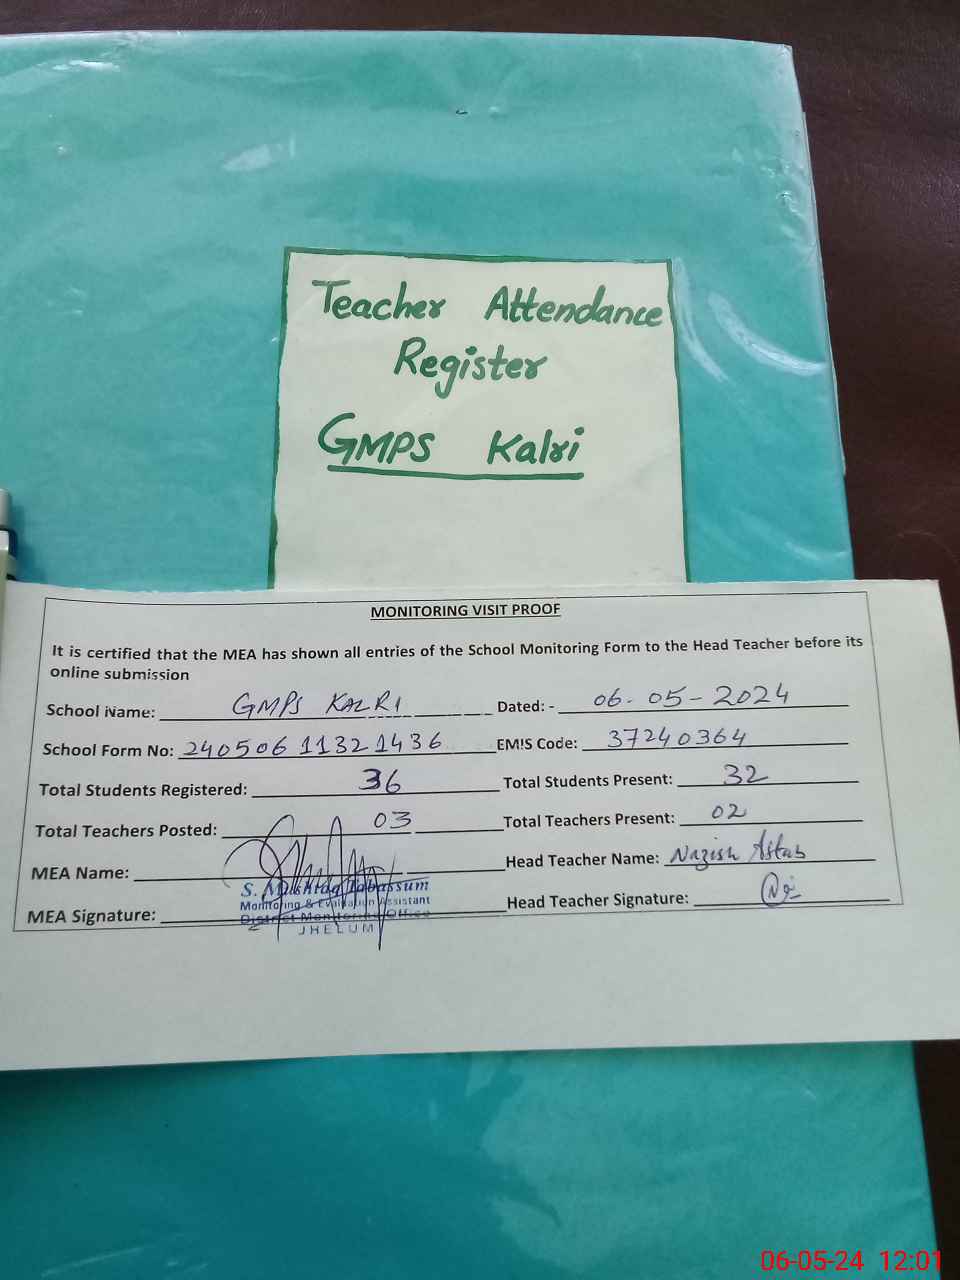 Teacher Attendance
Register
GMPS Kalri
MONITORING VISIT PROOF
It is certified that the MEA has shown all entries of the School Monitoring Form to the Head Teacher before its
online submission
School Name: GMPS KALRI Dated: - 06-05-2024
School Form No: 240506 11321436 EMIS Code: 37240364
Total Students Registered: 36 Total Students Present: 32
Total Teachers Posted: 03 Total Teachers Present: 02
MEA Name: Head Teacher Name: Nazish Aftab
S. Mushtaq Tabassum
Monitoring & Evaluation Assistant
MEA Signature: District Monitoring Office Head Teacher Signature:
JHELUM
06-05-24 12:01